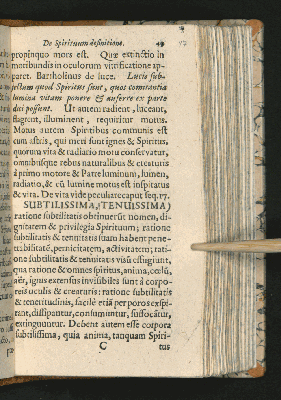 De Spirituum definitione. 49
propinquo mors est. Quæ extinctio in
moribundis in oculorum vitrificatione ap-
paret. Bartholinus de luce. Lucis sub-
jectum quod Spiritus sint, quos constantia
lumina vitam ponere & auferre ex parte
dici possunt. Ut autem radient, luceant,
flagrent, illuminent, requiritur motus.
Motus autem Spiritibus communis est
cum astris, qui meri sunt ignes & Spiritus,
quorum vita & radiatio motu conservatur,
omnibusque rebus naturalibus & creaturis
à primo motore & Patre luminum, lumen,
radiatio, & cū lumine motus est inspiratus
& vita. De vita vide peculiare caput seq. 17.
SUBTILISSIMA, TENUISSIMA)
ratione subtilitatis obtinuerūt nomen, di-
gnitatem & privilegia Spirituum; ratione
subtilitatis & tennitatis suam habent pene-
trabilitatē, pernicitatem, activitatem; rati-
one subtilitatis & tennitatis visū effugiunt,
qua ratione & omnes spiritus, anima, cœlū,
aër, ignis extensus invisibiles sunt à corpo-
reis oculis & creaturis: ratione subtilitatis
& tenuitudinis, facilè etiā per poros exspi-
rant, dissipantur, consumuntur, suffocātur,
extinguuntur. Debent autem esse corpora
subtilissima, quia anima, tanquam Spiri-
C tus